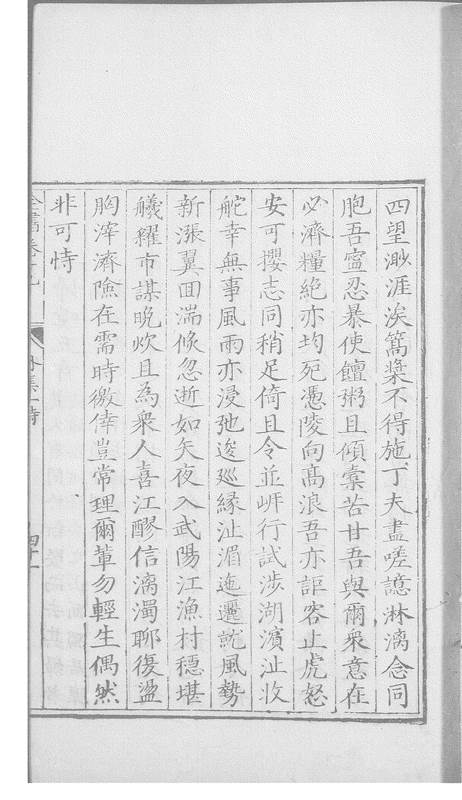 四望渺涯涘篙槳不得施丁夫盡嗟譩淋漓念同
胞吾寧忍暴使饘粥且傾橐苦甘吾與爾衆意在
必濟糧絕亦均死憑陵向高浪吾亦詎容止虎怒
安可攖志同稍足倚且令並岸行試涉湖濱沚收
舵幸無事風雨亦浸弛逡廵縁沚湄迤邐就風勢
新漲翼回湍倐忽逝如矢夜入武陽江漁村穩堪
艤糴市謀晚炊且為衆人喜江醪信漓濁聊復盪
胸滓濟險在需時徼倖豈常理爾軰勿輕生偶然
非可恃
全書卷十九
外集一 詩